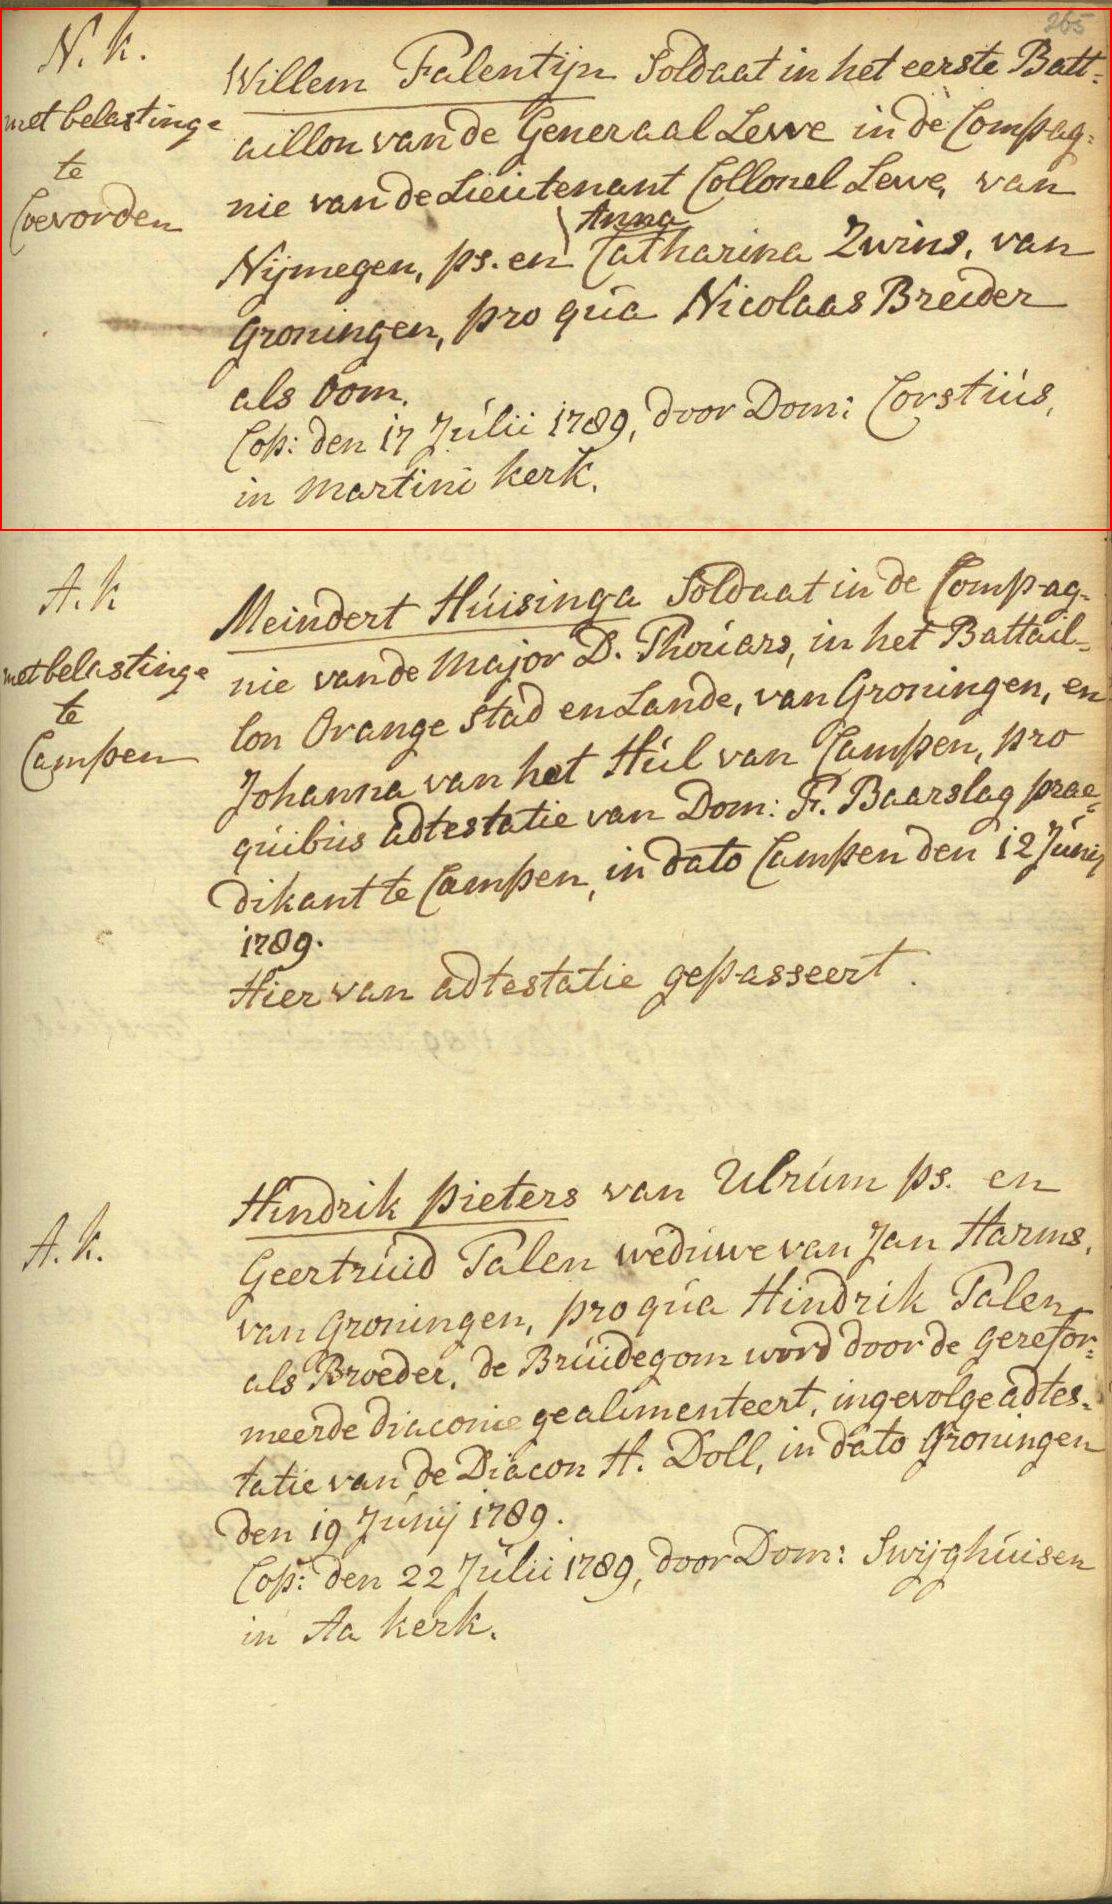 265
N. k.
met belastinge
te
Coevorden
Willem Falentijn Soldaat in het eerste Batt=
aillon van de Generaal Lewe in de Compag=
nie van de Lieutenant Collonel Lewe, van
Anna
Nijmegen, ps. en Catharina Zwins, van
Groningen, pro qua Nicolaas Breuder
als Oom.
Cop: den 17 Julii 1789, door Dom: Corstius,
in Martini kerk.
A. k
met belastinge
te
Campen
Meindert Huisinga Soldaat in de Compag=
nie van de Major D. Thouars, in het Battail=
lon Orange Stad en Lande, van Groningen, en
Johanna van het Hul van Campen, pro
quibus adtestatie van Dom: F. Baarslag prae=
dikant te Campen, in dato Campen den 12 Junij
1789.
Hier van adtestatie gepasseert.
A. k.
Hindrik Pieters van Ulrum ps. en
Geertruid Talen weduwe van Jan Harms,
van Groningen, pro qua Hindrik Talen
als Broeder, de Bruidegom word door de gerefor=
meerde diaconie gealimenteert, ingevolge adtes=
tatie van de Diacon H. Doll, in dato Groningen
den 19 Junij 1789.
Cop: den 22 Julii 1789, door Dom: Swijghuisen
in Aa kerk.